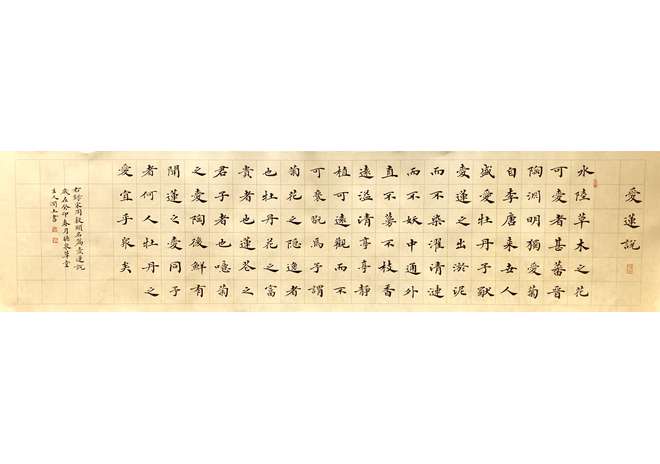 愛蓮說
水陸草木之花
可愛者甚蕃晉
陶淵明獨愛菊
自李唐來世人
盛愛牡丹予獨
愛蓮之出淤泥
而不染濯清漣
而不妖中通外
直不蔓不枝香
遠溢清亭亭靜
植可遠觀而不
可褻翫焉予謂
菊花之隱逸者
也牡丹花之富
貴者也蓮花之
君子者也噫菊
之愛陶後鮮有
聞蓮之愛同予
者何人牡丹之
愛宜乎眾矣
右錄宋周敦頤名篇愛蓮說
歲在癸卯春月德泉草堂
主人潤土書